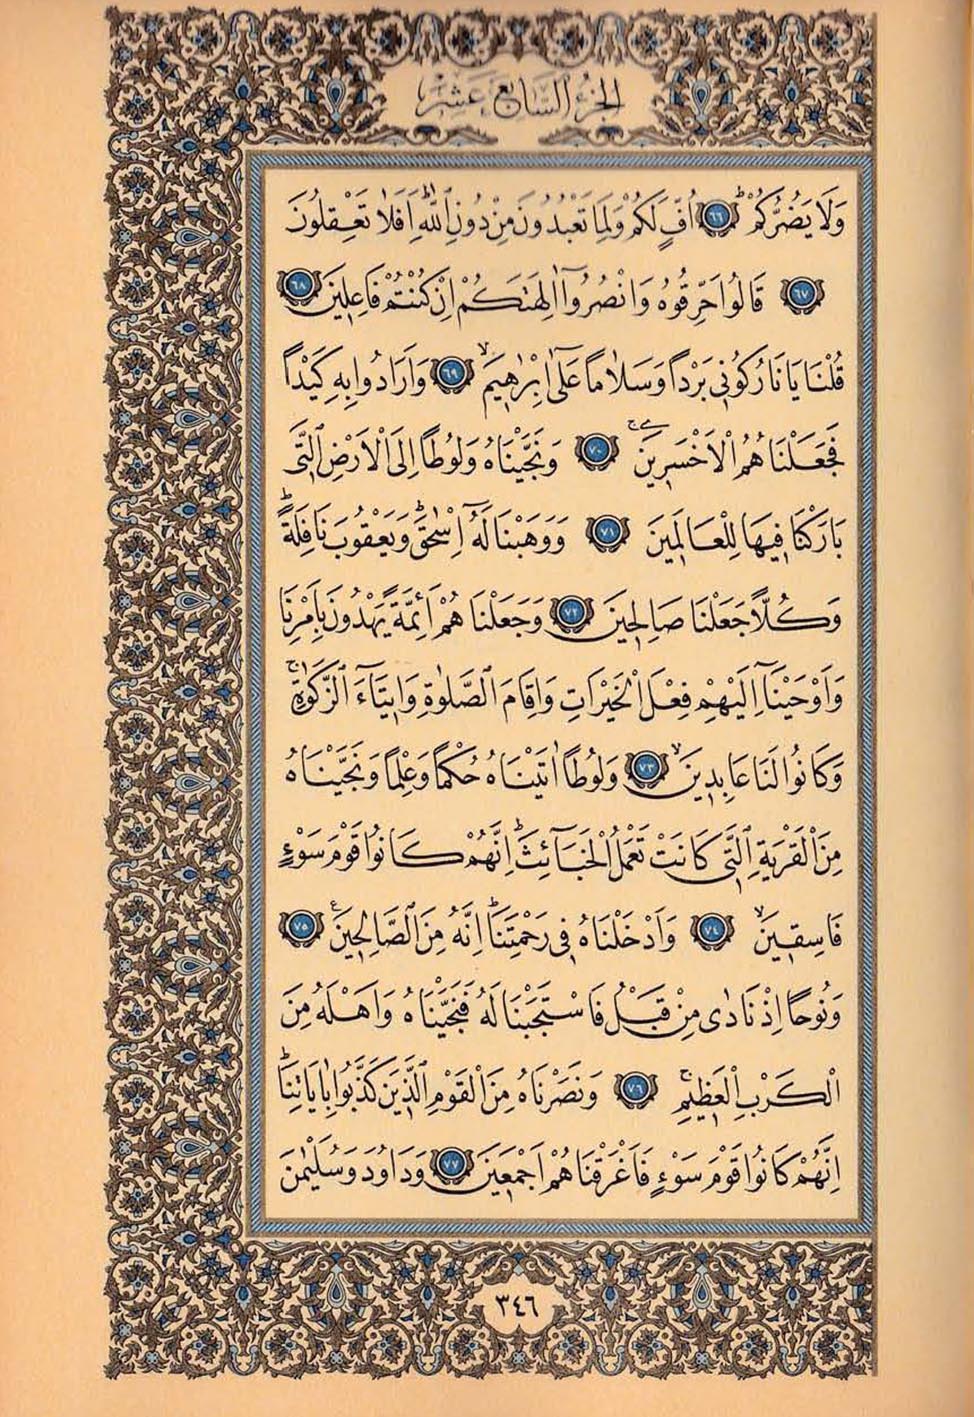 الجزء السابع عشر
وَلَا يَضُرُّكُمْۜ ﴿٦٦﴾ اُفٍّ لَكُمْ وَلِمَا تَعْبُدُونَ مِنْ دُونِ اللّٰهِۜ اَفَلَا تَعْقِلُونَ
﴿٦٧﴾ قَالُوا حَرِّقُوهُ وَانْصُرُٓوا اٰلِهَتَكُمْ اِنْ كُنْتُمْ فَاعِلٖينَ ﴿٦٨﴾
قُلْنَا يَا نَارُ كُونٖي بَرْدًا وَسَلَامًا عَلٰٓى اِبْرٰهٖيمَۙ ﴿٦٩﴾ وَاَرَادُوا بِهٖ كَيْدًا
فَجَعَلْنَاهُمُ الْاَخْسَرٖينَۚ ﴿٧٠﴾ وَنَجَّيْنَاهُ وَلُوطًا اِلَى الْاَرْضِ الَّتٖي
بَارَكْنَا فٖيهَا لِلْعَالَمٖينَ ﴿٧١﴾ وَوَهَبْنَا لَهُٓ اِسْحٰقَۜ وَيَعْقُوبَ نَافِلَةًۜ
وَكُلًّا جَعَلْنَا صَالِحٖينَ ﴿٧٢﴾ وَجَعَلْنَاهُمْ اَئِمَّةً يَهْدُونَ بِاَمْرِنَا
وَاَوْحَيْنَٓا اِلَيْهِمْ فِعْلَ الْخَيْرَاتِ وَاِقَامَ الصَّلٰوةِ وَاٖيتَٓاءَ الزَّكٰوةِۚ
وَكَانُوا لَنَا عَابِدٖينَۙ ﴿٧٣﴾ وَلُوطًا اٰتَيْنَاهُ حُكْمًا وَعِلْمًا وَنَجَّيْنَاهُ
مِنَ الْقَرْيَةِ الَّتٖي كَانَتْ تَعْمَلُ الْخَبَٓائِثَۜ اِنَّهُمْ كَانُوا قَوْمَ سَوْءٍ
فَاسِقٖينَۙ ﴿٧٤﴾ وَاَدْخَلْنَاهُ فٖي رَحْمَتِنَاۜ اِنَّهُ مِنَ الصَّالِحٖينَ ﴿٧٥﴾
وَنُوحًا اِذْ نَادٰى مِنْ قَبْلُ فَاسْتَجَبْنَا لَهُ فَنَجَّيْنَاهُ وَاَهْلَهُ مِنَ
الْكَرْبِ الْعَظٖيمِۚ ﴿٧٦﴾ وَنَصَرْنَاهُ مِنَ الْقَوْمِ الَّذٖينَ كَذَّبُوا بِاٰيَاتِنَاۜ
اِنَّهُمْ كَانُوا قَوْمَ سَوْءٍ فَاَغْرَقْنَاهُمْ اَجْمَعٖينَ ﴿٧٧﴾ وَدَاوُدَ وَسُلَيْمٰنَ
٣٤٦